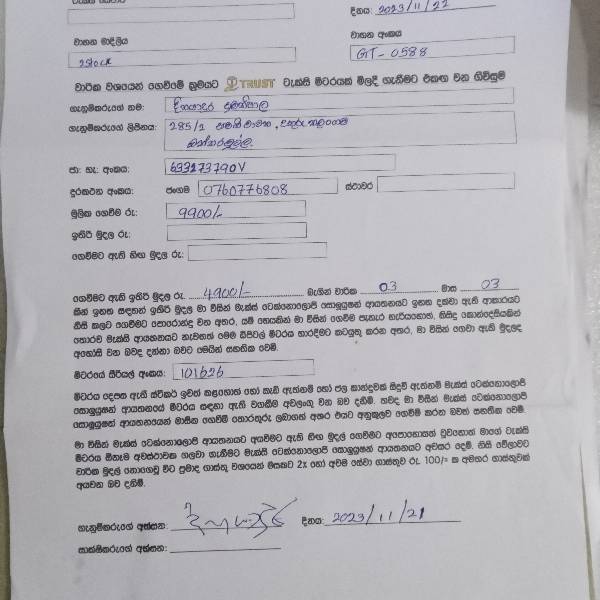 දිනය: 2023/11/22
වාහන මාදිලිය
වාහන අංකය
2Stock
GT-0588
වාරික වශයෙන් ගෙවීමේ ක්‍රමයට TRUST ටැක්සි මීටරයක් මිලදී ගැනීමට එකඟ වන ගිවිසුම
ගැනුම්කරුගේ නම:
ගැනුම්කරුගේ ලිපිනය: 285/2
ජා: හැ: අංකය: 633273790V
දුරකථන අංකය: ජංගම 0760776808 ස්ථාවර
මූලික ගෙවීම රු: 9900/-
ඉතිරි මුදල රු:
ගෙවීමට ඇති හිඟ මුදල රු:
ගෙවීමට ඇති ඉතිරි මුදල රු. 4900/- බැගින් වාරික 03 මාස 03
කින් ඉහත සඳහන් ඉතිරි මුදල මා විසින් මැක්ස් ටෙක්නොලොජි සොලුෂන් ආයතනයට ඉහත දක්වා ඇති ආකාරයට
නිසි කලට ගෙවීමට පොරොන්දු වන අතර, යම් හෙයකින් මා විසින් ගෙවීම් පැහැර හැරියහොත්, කිසිදු කොන්දේසියකින්
තොරව මැක්සි ආයතනයට නැවතත් මෙම ඩිජිටල් මීටරය භාරදීමට කටයුතු කරන අතර, මා විසින් ගෙවා ඇති මුදලද
අහෝසි වන බවද දන්නා බවට මෙයින් සහතික වෙමි.
මීටරයේ සීරියල් අංකය: 101626
මීටරය දෙපස ඇති ස්ටිකර් ඉවත් කළහොත් හෝ කැඩී ඇත්නම් හෝ ජල කාන්දුවක් සිදුවී ඇත්නම් මැක්ස් ටෙක්නොලොජි
සොලුෂන් ආයතනයේ මීටරය සඳහා ඇති වගකීම අවලංගු වන බව දනිමි. තවද මා විසින් මැක්ස් ටෙක්නොලොජි
සොලුෂන් ආයතනයෙන් මාසික ගෙවීම් තොරතුරු ලබාගත් අතර එයට අනුකූලව ගෙවීම් කරන බවත් සහතික වෙමි.
මා විසින් මැක්ස් ටෙක්නොලොජි ආයතනයට අයවීමට ඇති හිඟ මුදල් ගෙවීමට අපොහොසත් වුවහොත් මාගේ ටැක්සි
මීටරය ඕනෑම අවස්ථාවක ගලවා ගැනීමට මැක්සි ටෙක්නොලොජි සොලුෂන් ආයතනයට අවසර දෙමි. නිසි වේලාවට
වාරික මුදල් නොගෙවූ විට ප්‍රමාද ගාස්තු වශයෙන් මසකට 2x හෝ අවම සේවා ගාස්තුව රු. 100/= ක අමතර ගාස්තුවක්
අයවන බව දනිමි.
ගැනුම්කරුගේ අත්සන: දිනය: 2023/11/21
සාක්ෂිකරුගේ අත්සන: